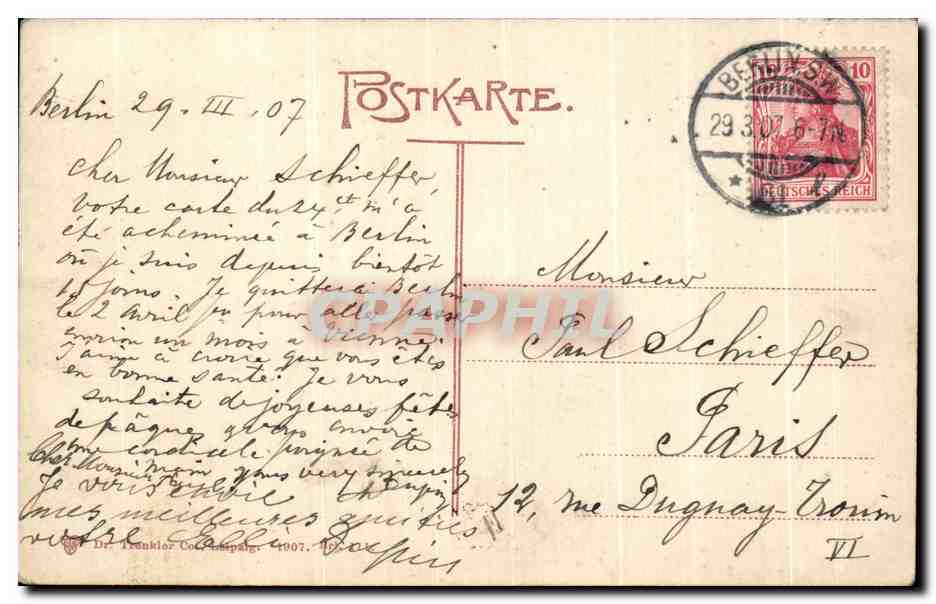 POSTKARTE.
Berlin 29. III. 07
Cher Monsieur Schieffer,
votre carte du 24 ct m'a
été acheminée à Berlin
où je suis depuis bientôt
15 jours. Je quitterai Berlin
le 2 Avril pour aller passer
environ un mois à Vienne.
J'aime à croire que vous êtes
en bonne santé. Je vous
souhaite de joyeuses fêtes
de pâques, vous envoie
une cordiale poignée de
main yours very sincerely
Cher Monsieur
Je vous envoie
mes meilleures amitiés
votre
BERLIN S.W.
29.3.07. 6-7N.
10
DEUTSCHES REICH
Monsieur
Paul Schieffer
Paris
12, rue Duguay-Trouin
VI
Dr. Trenkler Co., Leipzig. 1907.
CPAPHIL